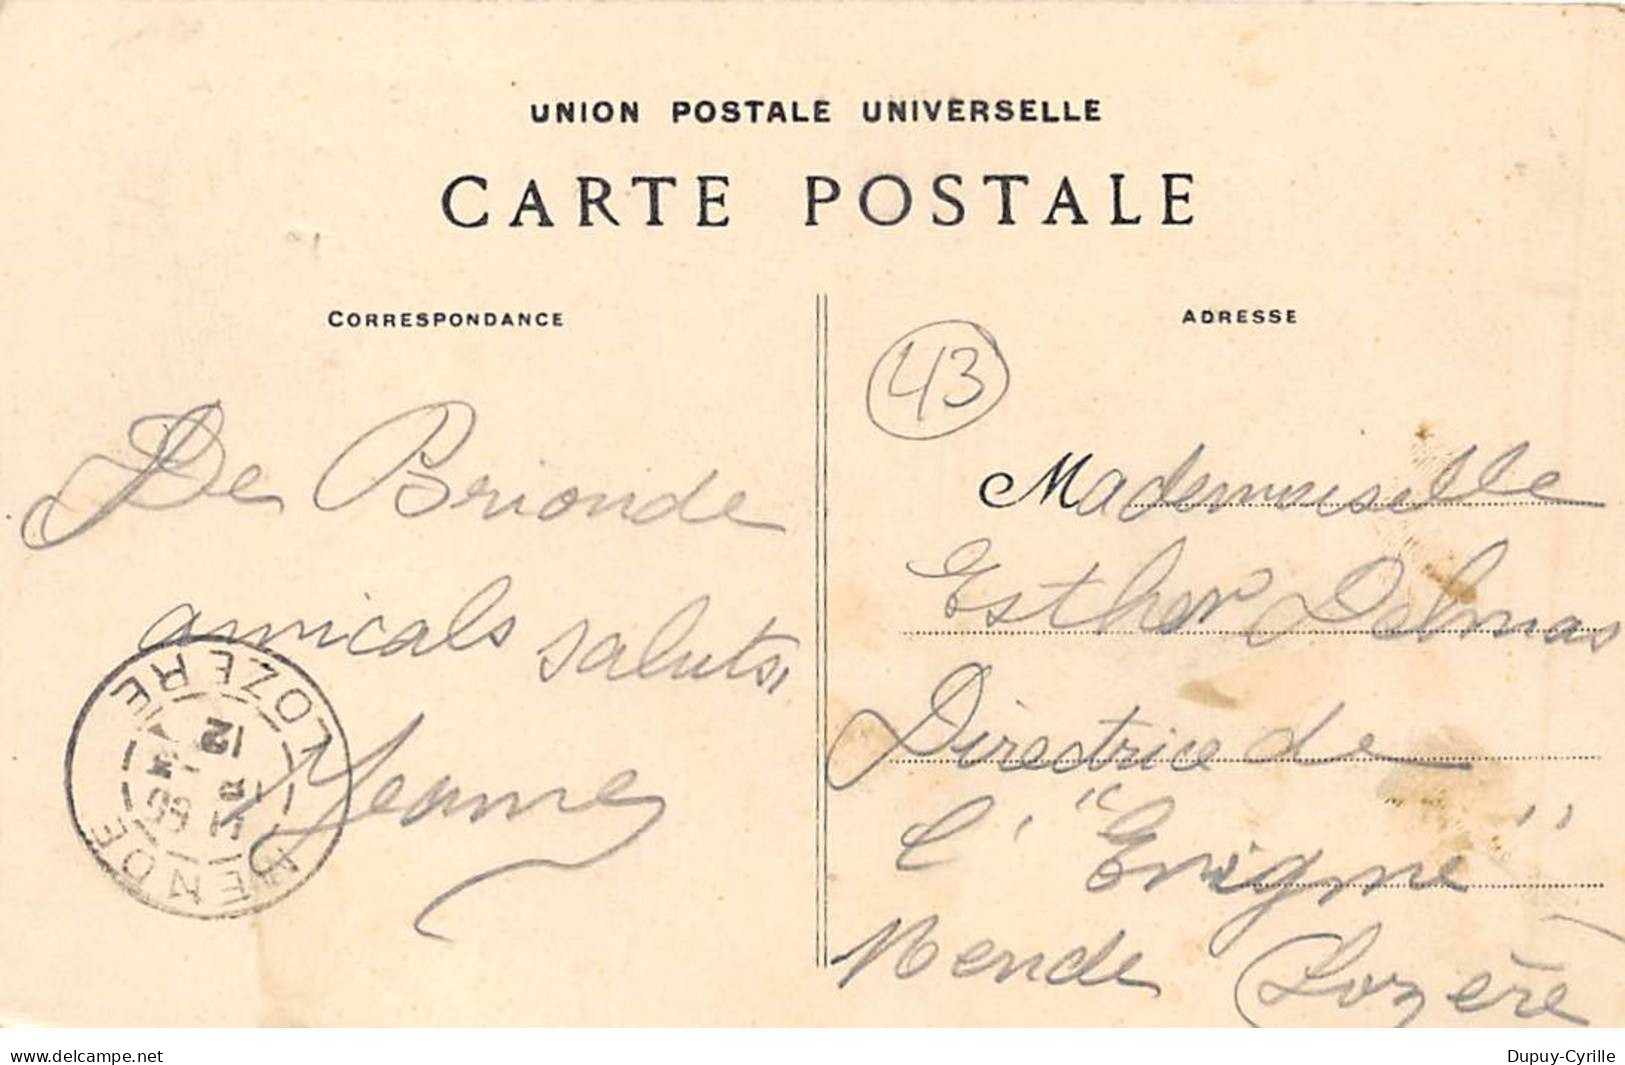 UNION POSTALE UNIVERSELLE
CARTE POSTALE
CORRESPONDANCE
ADRESSE
43
De Brionde
amicals saluts,
Jeanne
Mademoiselle
Esther Delmas
Directrice de
l' "Enigme"
Mende Lozère
MENDE LOZERE
12
www.delcampe.net
Dupuy-Cyrille